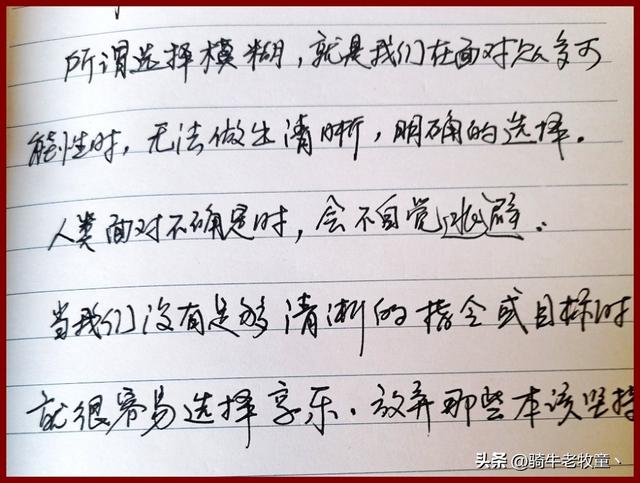 所谓选择模糊，就是我们在面对众多可
能性时，无法做出清晰，明确的选择。
人类面对不确定时，会不自觉逃避。
当我们没有足够清淅的指令或目标时
就很容易选择享乐．放弃那些本该坚持
头条 @骑牛老牧童丶